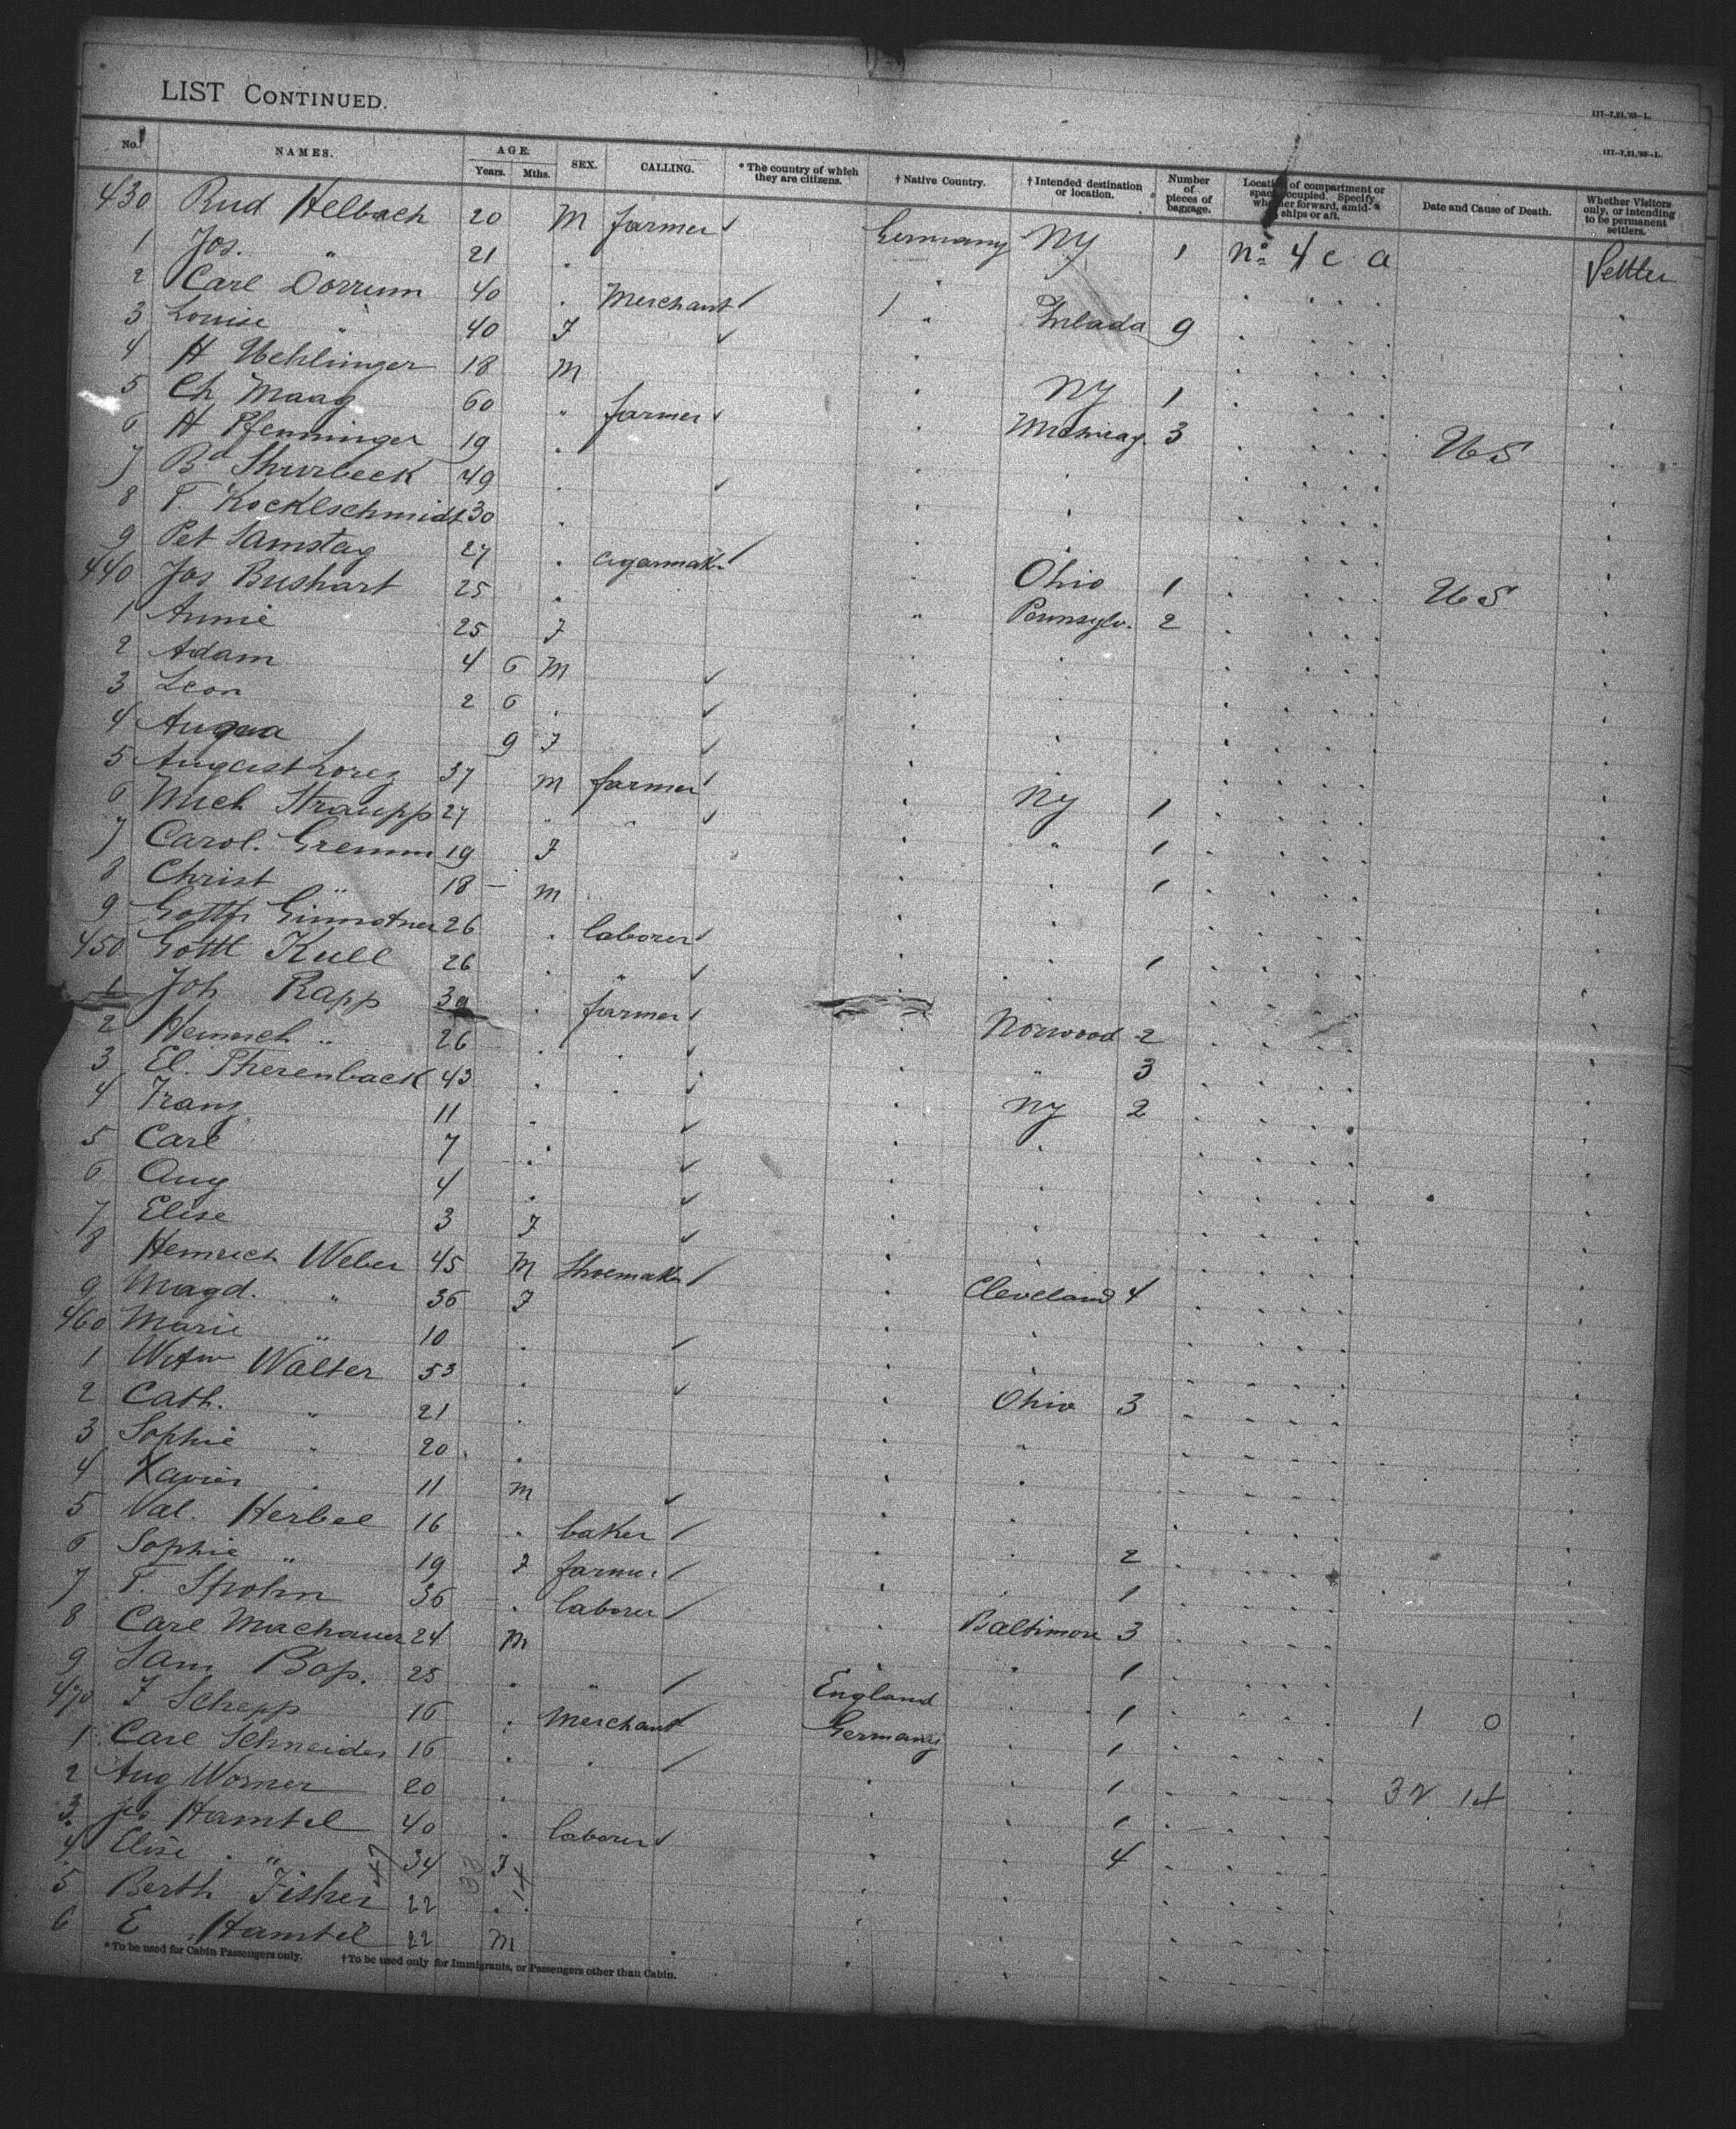 LIST CONTINUED.
117-7,21,'93-L.
117-7,21,'93-L.
No. NAMES. AGE. Years. Mths. SEX. CALLING. * The country of which they are citizens. † Native Country. † Intended destination or location. Number of pieces of baggage. Location of compartment or space occupied. Specify whether forward, amidships or aft. Date and Cause of Death. Whether Visitors only, or intending to be permanent settlers.
430 Rud Helbach 20 M farmer Germany NY 1 No 4 c a Settler
1 Jos. " 21
2 Carl Dorrum 40 Merchant 1 " 9
3 Louise " 40 F
4 H Uehlinger 18 M NY 1
5 Ch Maag 60 " farmer 3
6 H Pfenninger 19 US
7 Bd Shurbeck 49
8 T. Kocklschmidt 30
9 Pet Samstag 27 cigarmaker Ohio 1 US
440 Jos Bushart 25 " Pennsylv. 2
1 Annie 25 F
2 Adam 4 6 M
3 Leon 2 6
4 Augua 9 F
5 August Lorez 37 M farmer NY 1
6 Mich Straupp 27 " 1
7 Carol. Gremm 19 F 1
8 Christ " 18 - M
9 Gottfr 26 laborer 1
450 Gottl Kull 26 "
1 Joh Rapp 30 farmer Norwood 2
2 Heinrich " 26 " 3
3 El. Therenback 43 NY 2
4 Franz 11
5 Carl 7
6 Aug 4
7 Elise 3 F
8 Heinrich Weber 45 M Shoemaker Cleveland 4
9 Magd. " 36 F
460 Marie " 10
1 Witw Walter 53 Ohio 3
2 Cath. " 21 "
3 Sophie " 20
4 Xavier " 11 M
5 Val. Herbel 16 baker 2
6 Sophie " 19 F farmer 1
7 T. Spohn 36 laborer Baltimore 3
8 Carl Machauer 24 M 1
9 Sam 25 " England 1 1 0
470 F Schepp 16 Merchant Germany 1
1 Carl Schneider 16 1
2 Aug Worner 20 1 32 14
3 Jos Hamtel 40 laborer 4
4 Elise " 47 34 33 F 14
5 Berth Fisher 22
6 E Hamtel 22 M
*To be used for Cabin Passengers only. †To be used only for Immigrants, or Passengers other than Cabin.